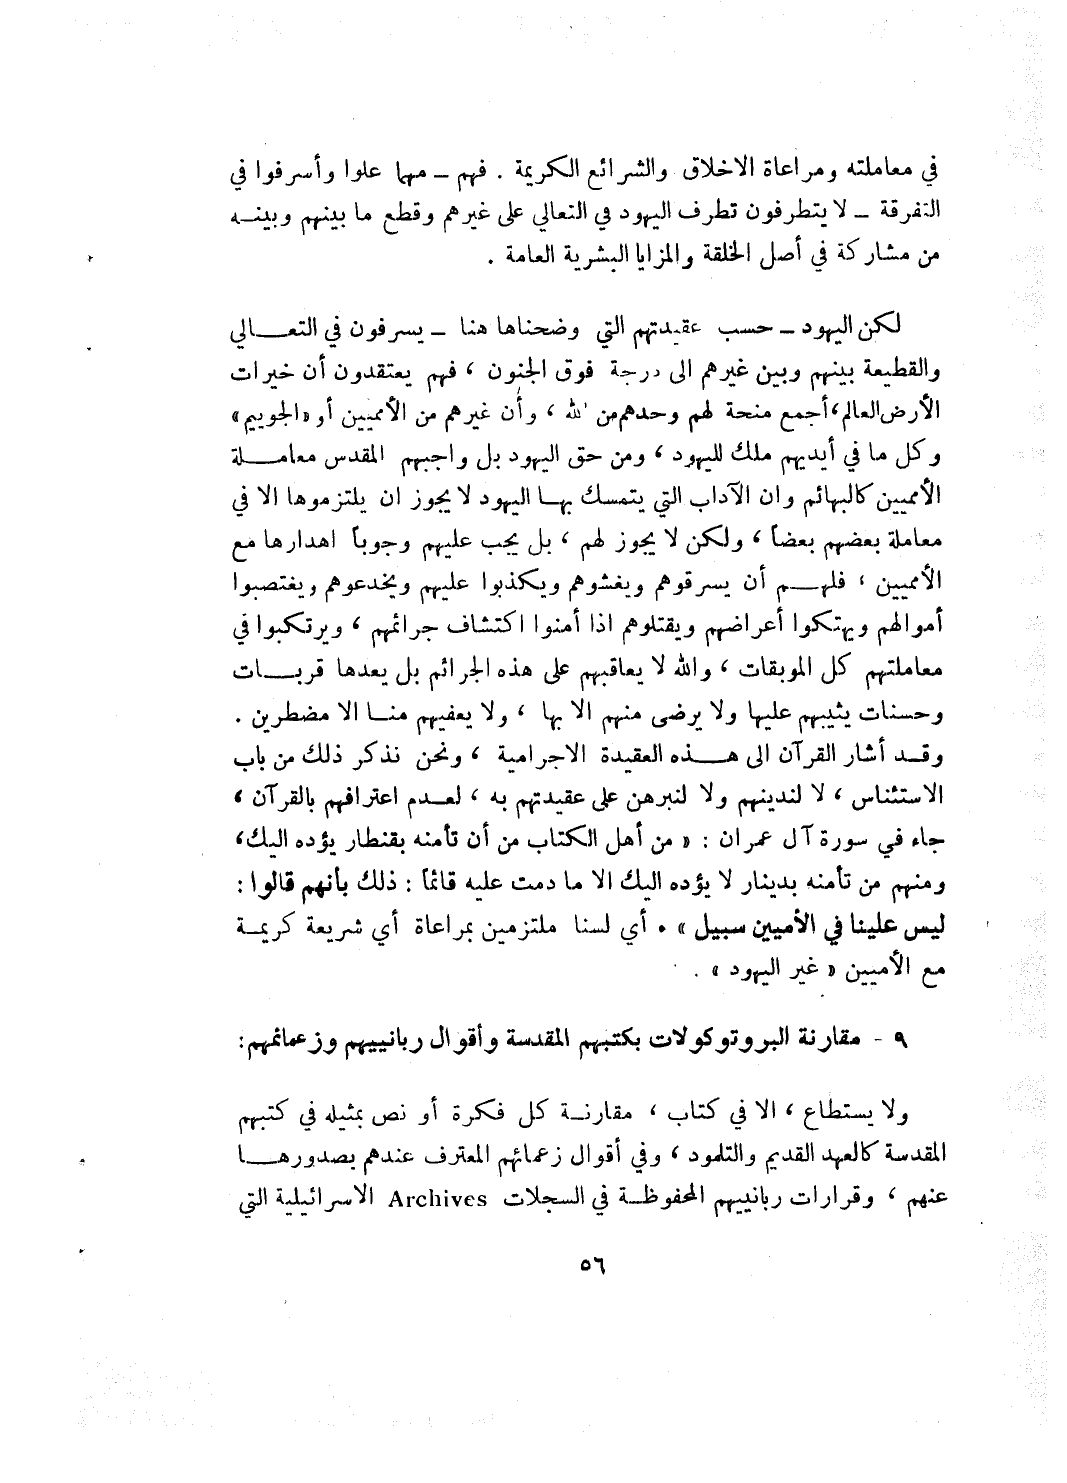 في معاملته ومراعاة الاخلاق والشرائع الكريمة . فهم ــ مهما علوا وأسرفوا في
التفرقة ــ لا يتطرفون تطرف اليهود في التعالي على غيرهم وقطع ما بينهم وبينــه
من مشاركة في أصل الخلقة والمزايا البشرية العامة .
لكن اليهود ــ حسب عقيدتهم التي وضحناها هنا ــ يسرفون في التعـــالي
والقطيعة بينهم وبين غيرهم الى درجة فوق الجنون ، فهم يعتقدون أن خيرات
الأرض العالم، أجمع منحة لهم وحدهم من الله ، وأن غيرهم من الأمميين أو «الجوييم»
وكل ما في أيديهم ملك لليهود ، ومن حق اليهود بل واجبهم المقدس معامـــلة
الأمميين كالبهائم وان الآداب التي يتمسك بهــا اليهود لا يجوز ان يلتزموها الا في
معاملة بعضهم بعضاً ، ولكن لا يجوز لهم ، بل يجب عليهم وجوباً اهدارها مع
الأمميين ، فلهـــم أن يسرقوهم ويغشوهم ويكذبوا عليهم ويخدعوهم ويغتصبوا
أموالهم ويهتكوا أعراضهم ويقتلوهم اذا أمنوا اكتشاف جرائمهم ، ويرتكبوا في
معاملتهم كل الموبقات ، والله لا يعاقبهم على هذه الجرائم بل يعدها قربـــات
وحسنات يثيبهم عليها ولا يرضى منهم الا بها ، ولا يعفيهم منــا الا مضطرين .
وقــد أشار القرآن الى هـــذه العقيدة الاجرامية ، ونحن نذكر ذلك من باب
الاستئناس ، لا لندينهم ولا لنبرهن على عقيدتهم به ، لعــدم اعترافهم بالقرآن ،
جاء في سورة آل عمران : « من أهل الكتاب من أن تأمنه بقنطار يؤده اليك،
ومنهم من تأمنه بدينار لا يؤده اليك الا ما دمت عليه قائماً : ذلك بأنهم قالوا :
ليس علينا في الأميين سبيل » . أي لسنا ملتزمين بمراعاة أي شريعة كريمــة
مع الأميين « غير اليهود » .
٩ - مقارنة البروتوكولات بكتبهم المقدسة وأقوال ربانييهم وزعمائهم:
ولا يستطاع ، الا في كتاب ، مقارنــة كل فكرة أو نص بمثيله في كتبهم
المقدسة كالعهد القديم والتلمود ، وفي أقوال زعمائهم المعترف عندهم بصدورهـــا
عنهم ، وقرارات ربانييهم المحفوظــة في السجلات Archives الاسرائيلية التي
٥٦